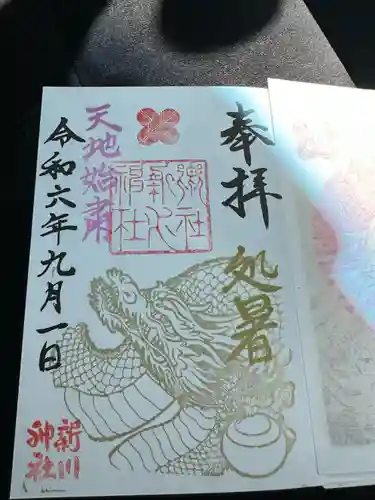 奉拝
処暑
天地始粛
令和六年九月一日
新川
神社